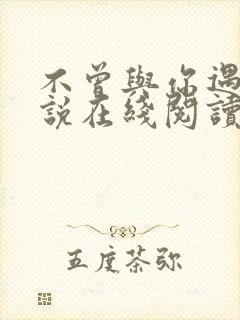 不曾與你遇
說在綫閱讀
五度茶弥